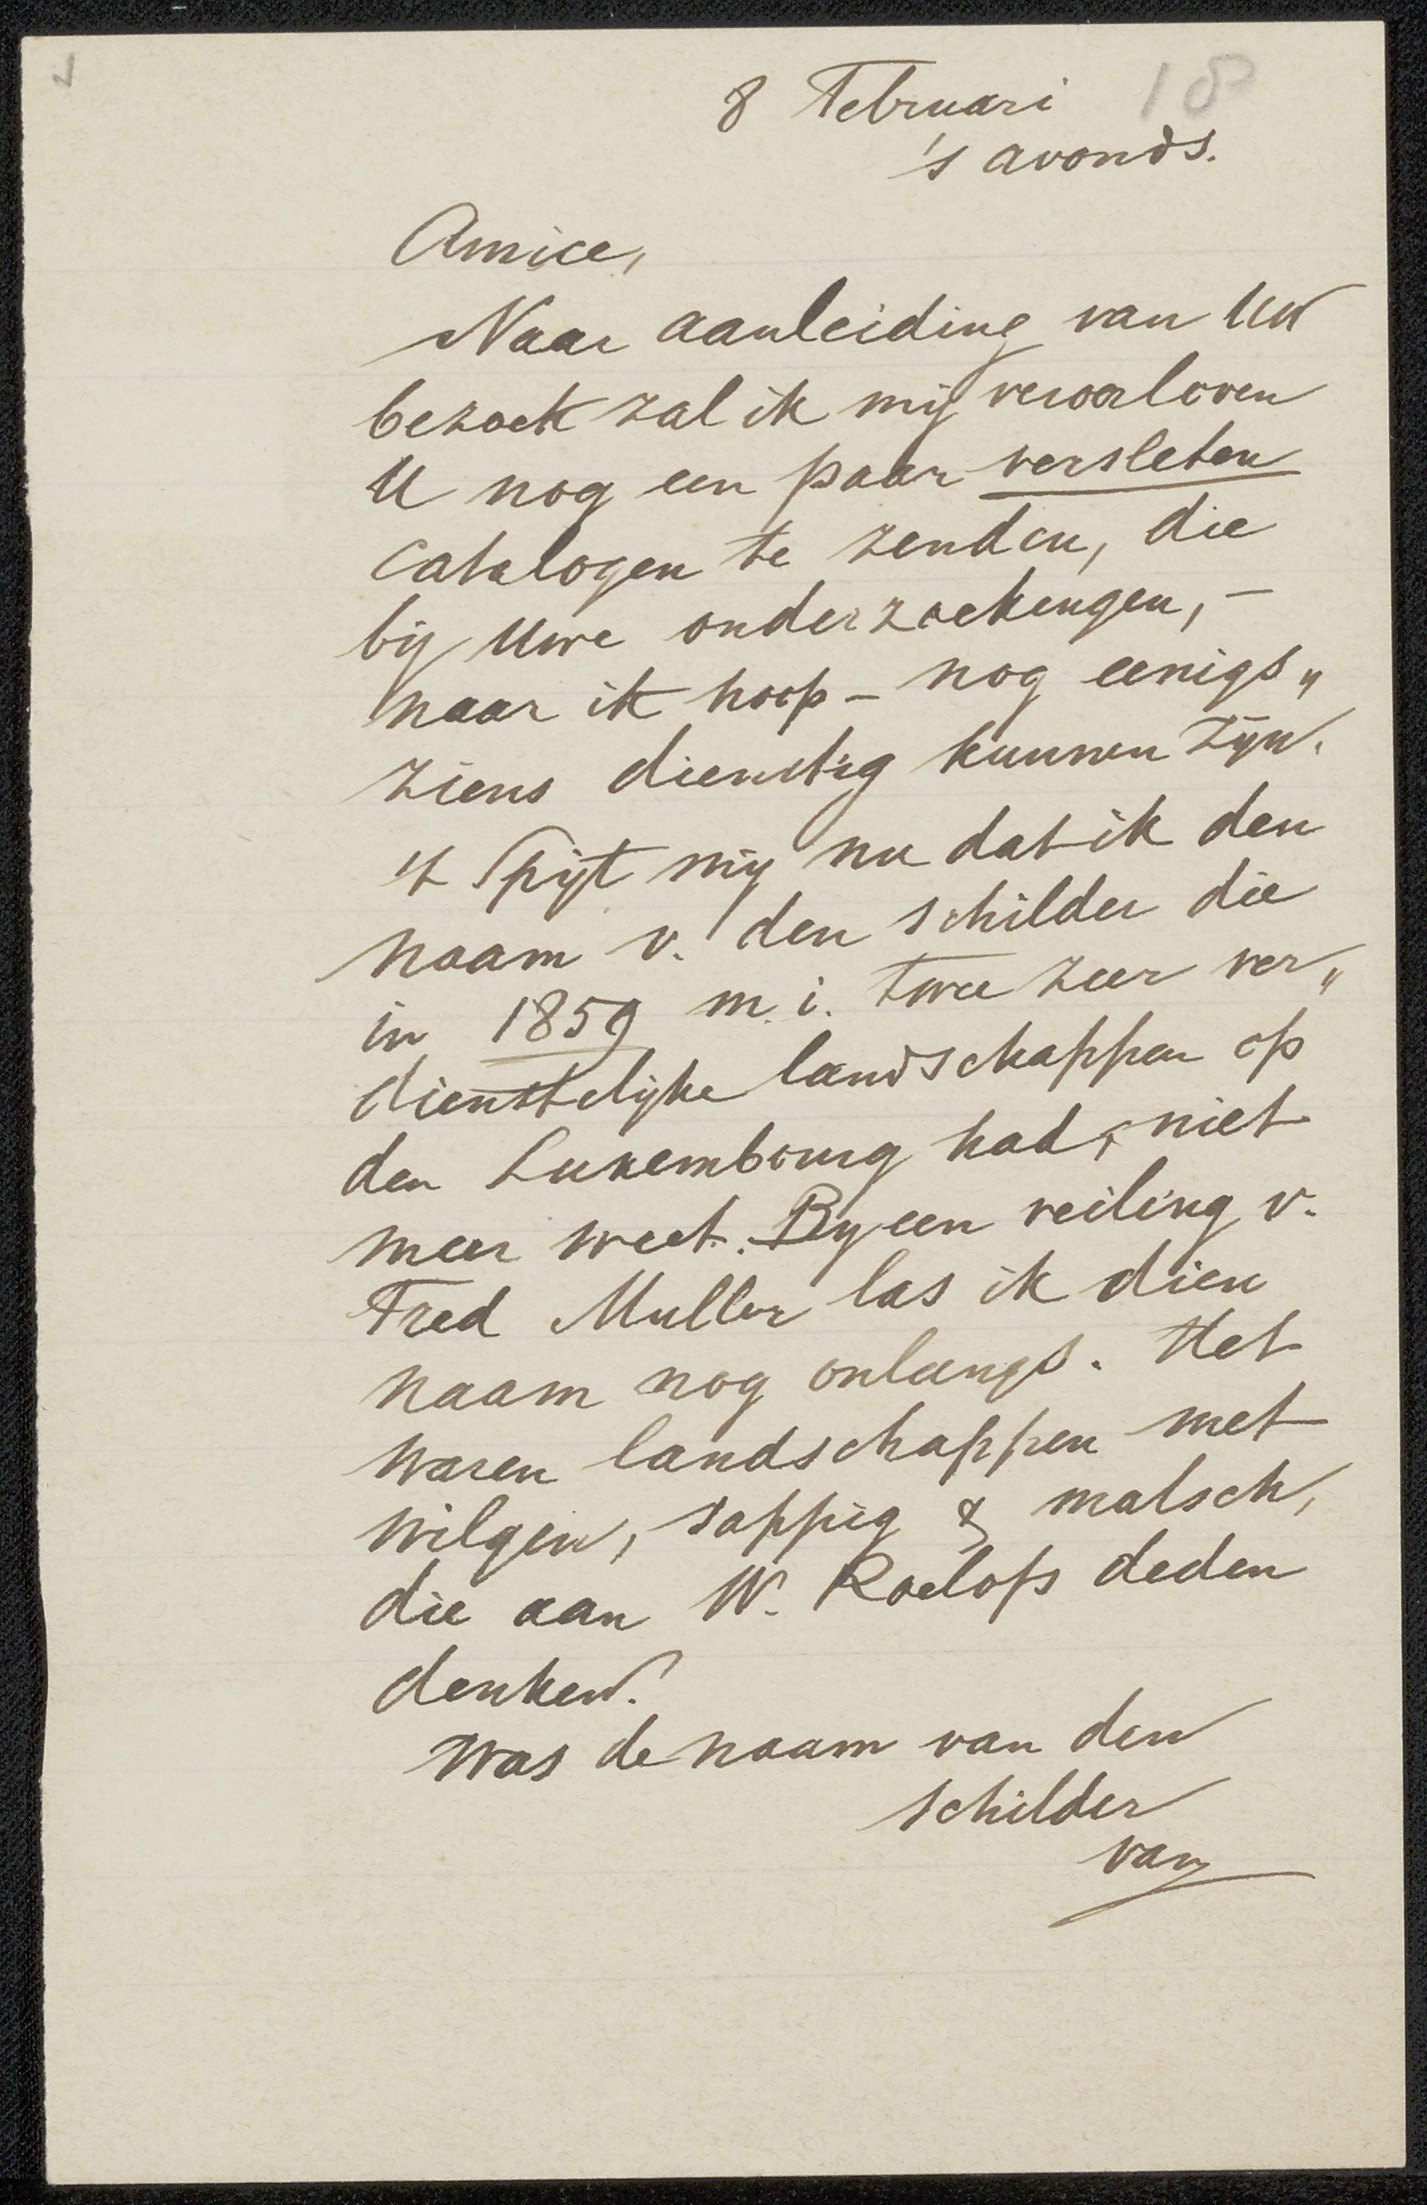 18
8 Februari
's avonds.
Amice,
Naar aanleiding van Uw
bezoek zal ik mij veroorloven
U nog een paar versleten
catalogen te zenden, die
bij Uwe onderzoekingen, -
naar ik hoop - nog eenigs„
ziens dienstig kunnen zijn.
't Spijt mij nu dat ik den
naam v. den schilder die
in 1859 m. i. twee zeer ver„
dienstelijke landschappen op
den Luxembourg had, niet
meer weet. Bij een veiling v.
Fred Muller las ik dien
naam nog onlangs. Het
waren landschappen met
wilgen, sappig & malsch,
die aan W. Roelofs deden
denken.
Was de naam van den
schilder
van